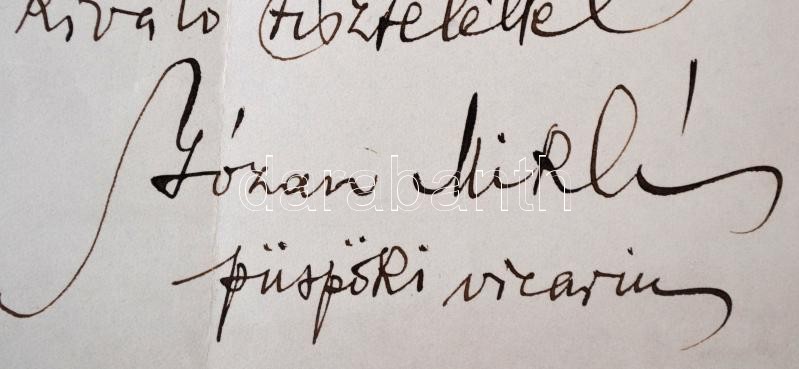 kiváló tisztelettel
Józan Miklós
püspöki vicarius
darabanth